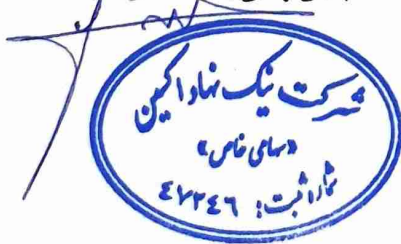 شرکت نیک نهاد آکین
«سهامی خاص»
شماره ثبت: ۴۷۲۴۶